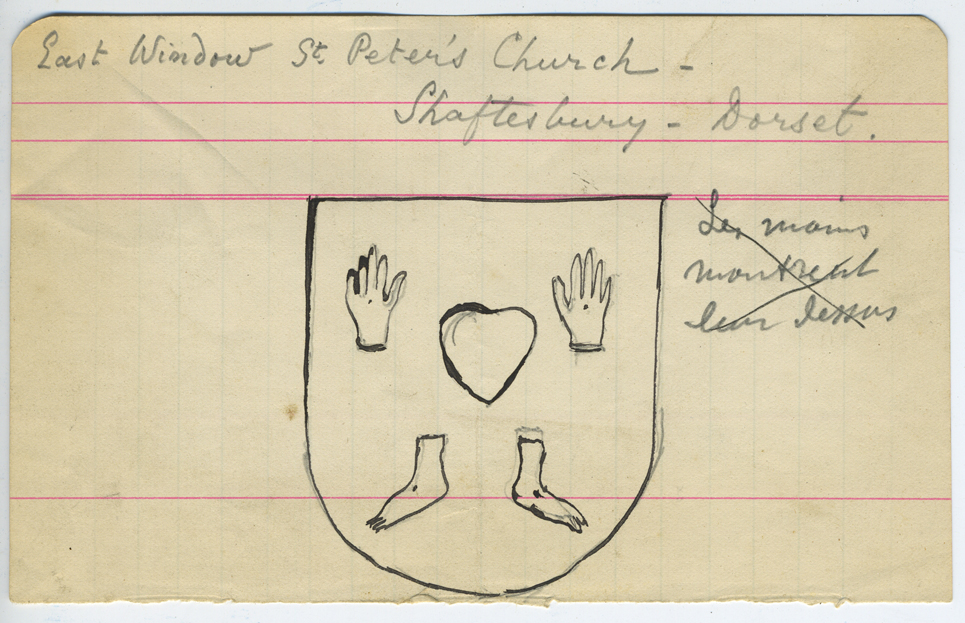 East Window St. Peter's Church -
Shaftesbury - Dorset.
Les mains
montrent
leur dessus